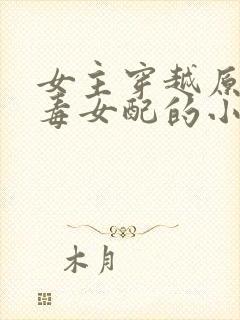 女主穿越原
毒女配的小
木月